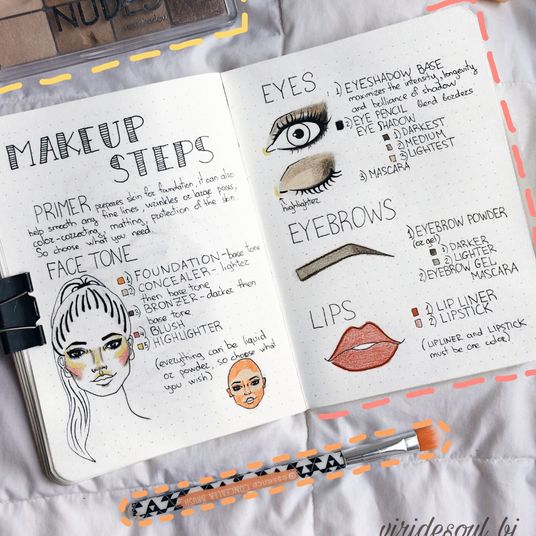 NUDES
eyeshadow
MAKEUP
STEPS
PRIMER prepares skin for fountation, it can also
help smooth any fine lines, wrinkles or large pores,
color-correcting, matting, protection of the skin.
So choose what you need.
FACE TONE
1) FOUNDATION-base tone
2) CONCEALER - lighter
then base tone
3) BRONZER-darker then
base tone
4) BLUSH
5) HIGHLIGHTER
(everything can be liquid
or powder, so choose what
you wish)
EYES
1) EYESHADOW BASE
maximizes the intensity, longevity
and brilliance of shadow
2) EYE PENCIL Blend borders
EYE SHADOW
1) DARKEST
2) MEDIUM
3) LIGHTEST
3) MASCARA
highlighter
EYEBROWS
1) EYEBROW POWDER
(or gel)
1) DARKER
2) LIGHTER
2) EYEBROW GEL
MASCARA
LIPS
1) LIP LINER
2) LIPSTICK
(LIPLINER and LIPSTICK
must be one color)
essence CONCEALER BRUSH
viridesoul_bj